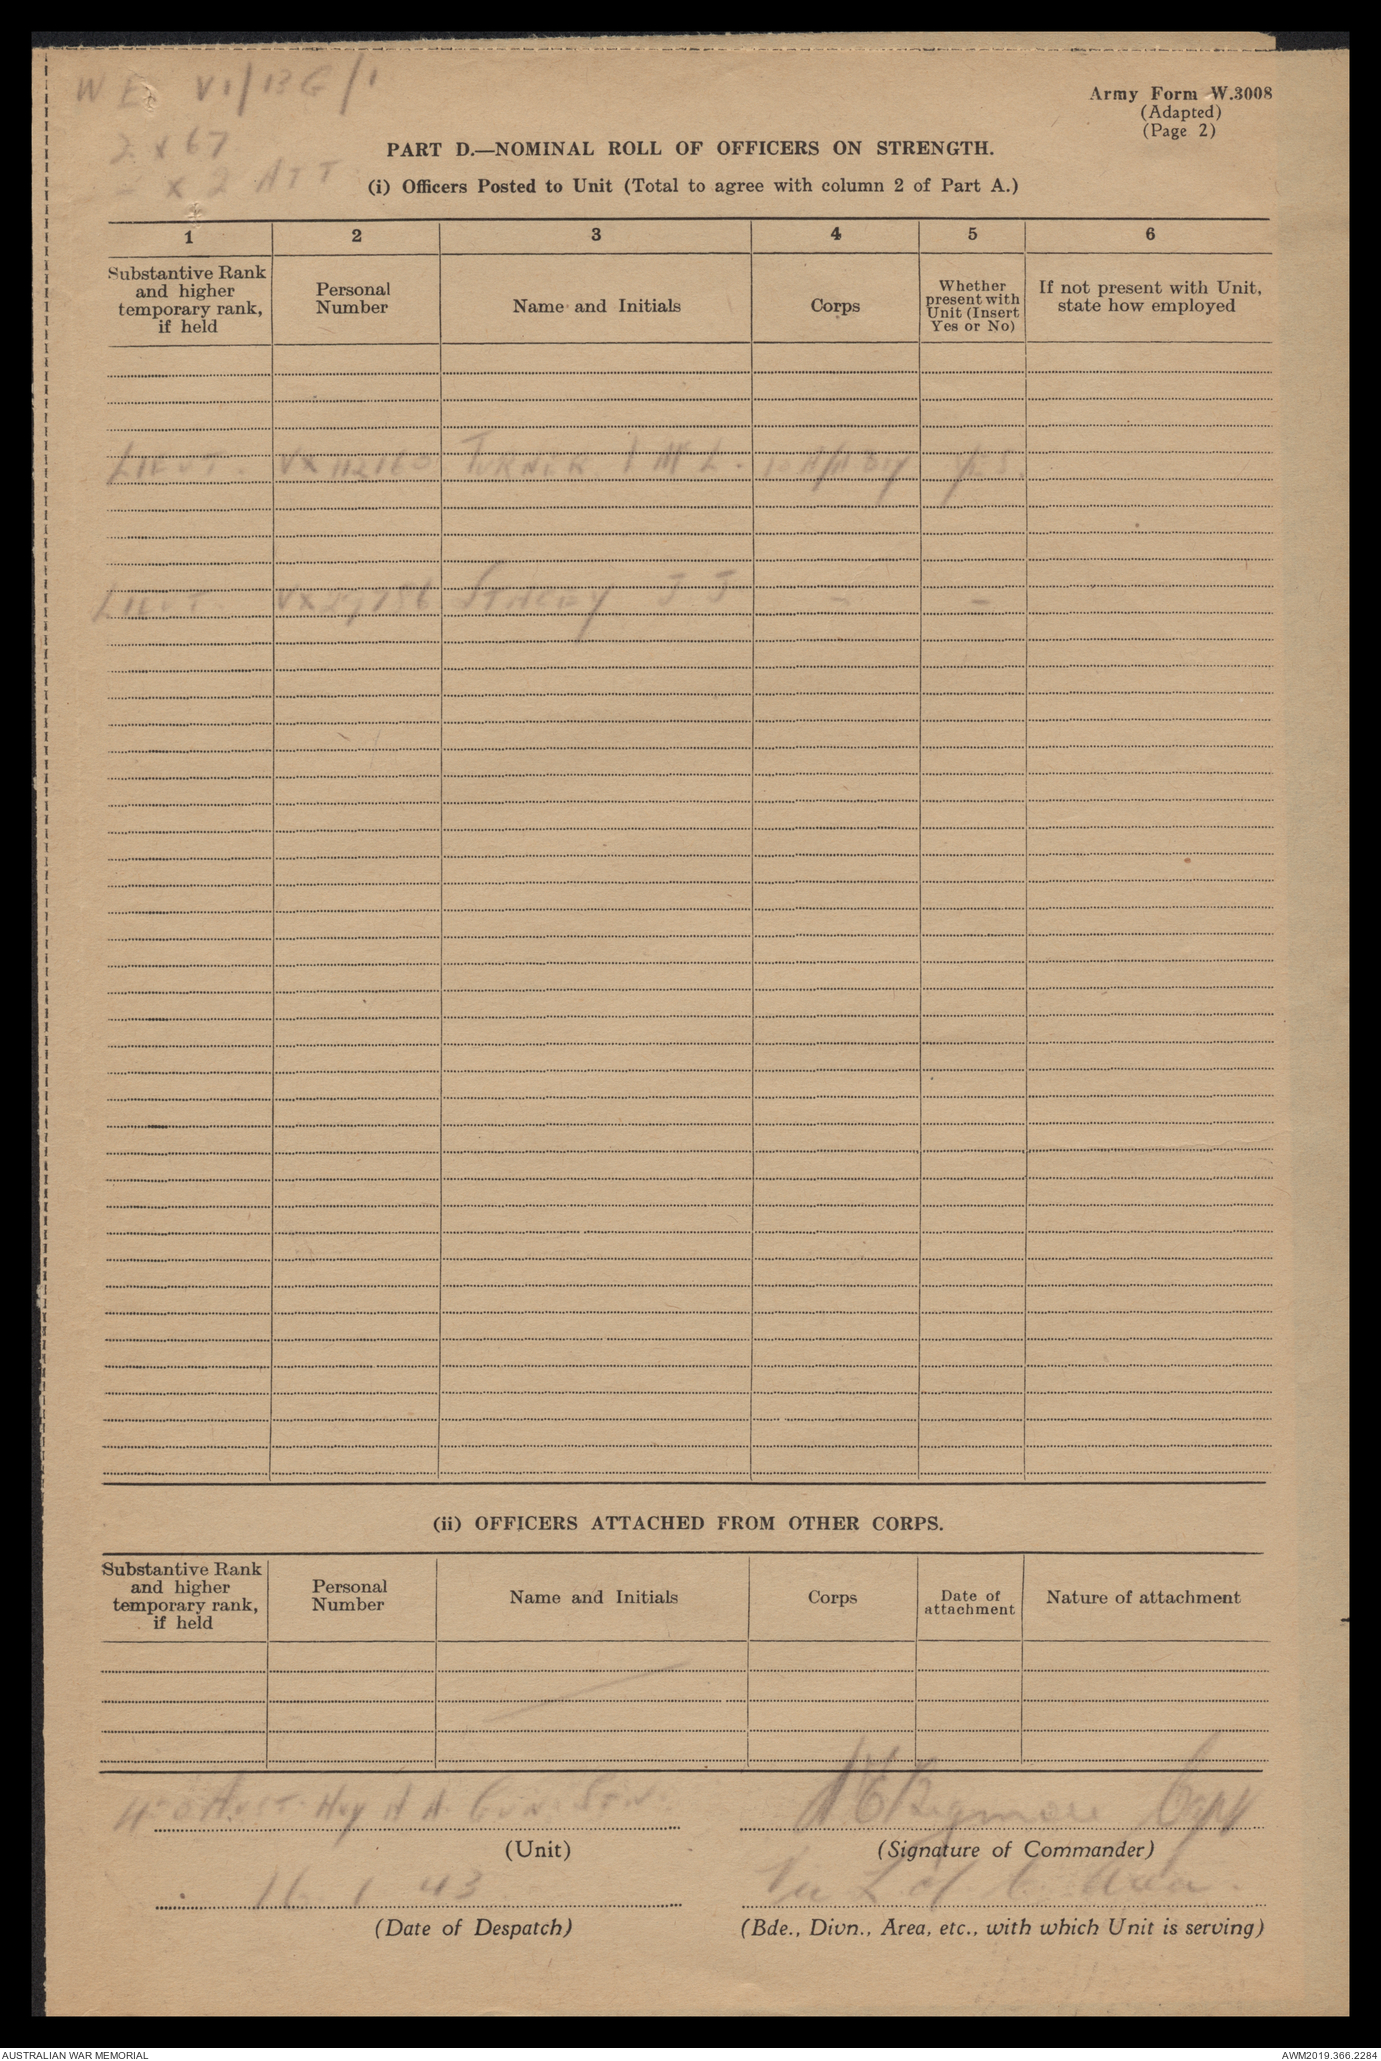 W E V1/13G/1
2 x 67
- x 2 ATT
Army Form W.3008
(Adapted)
(Page 2)
PART D.—NOMINAL ROLL OF OFFICERS ON STRENGTH.
(i) Officers Posted to Unit (Total to agree with column 2 of Part A.)
1 2 3 4 5 6
Substantive Rank and higher temporary rank, if held
Personal Number
Name and Initials
Corps
Whether present with Unit (Insert Yes or No)
If not present with Unit, state how employed
LIEUT. VX112160 TURNER I McL. 10 A/A Bty YES.
LIEUT. STACEY J J - -
(ii) OFFICERS ATTACHED FROM OTHER CORPS.
Substantive Rank and higher temporary rank, if held
Personal Number
Name and Initials
Corps
Date of attachment
Nature of attachment
AUST. Hvy A A. GUN. STN. Capt
(Unit) (Signature of Commander)
16 1 43 Vic L of C. Area.
(Date of Despatch) (Bde., Divn., Area, etc., with which Unit is serving)
AUSTRALIAN WAR MEMORIAL AWM2019.366.2284